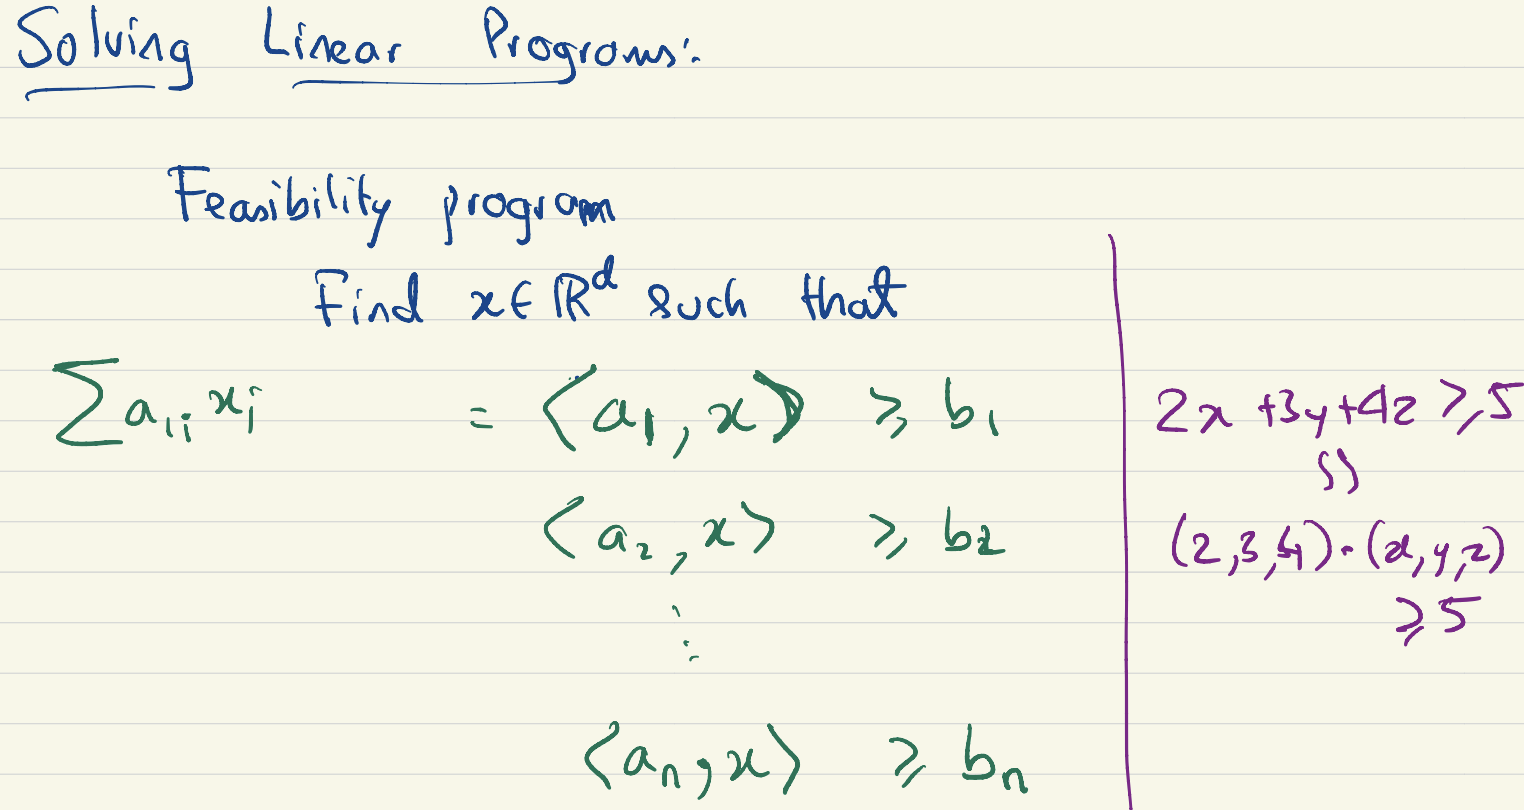 Solving Linear Programs:
Feasibility program
Find x ∈ ℝᵈ such that
∑ a₁ᵢ xᵢ = ⟨a₁, x⟩ ⩾ b₁
⟨a₂, x⟩ ⩾ b₂
⋮
⟨aₙ, x⟩ ⩾ bₙ
2x + 3y + 4z ⩾ 5
SS
(2, 3, 4) · (x, y, z)
⩾ 5